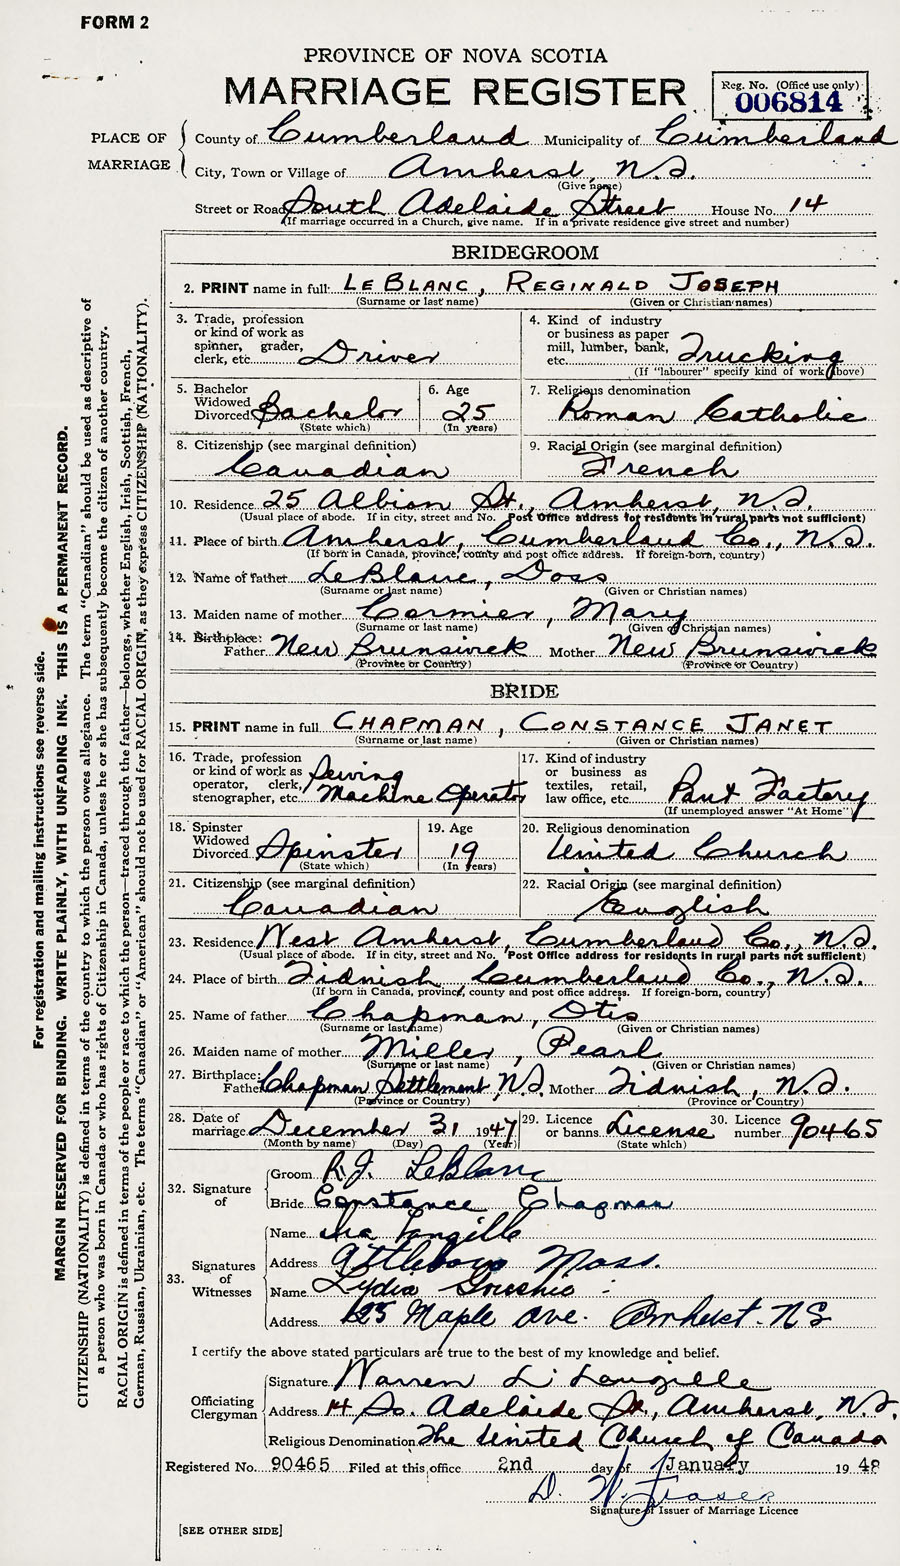 FORM 2
PROVINCE OF NOVA SCOTIA
MARRIAGE REGISTER
Reg. No. (Office use only)
006814
PLACE OF MARRIAGE
County of Cumberland Municipality of Cumberland
City, Town or Village of Amherst, N.S.
(Give name)
Street or Road South Adelaide Street House No. 14
(If marriage occurred in a Church, give name. If in a private residence give street and number)
BRIDEGROOM
2. PRINT name in full: LEBLANC, REGINALD JOSEPH
(Surname or last name) (Given or Christian names)
3. Trade, profession
or kind of work as
spinner, grader,
clerk, etc. Driver
4. Kind of industry
or business as paper
mill, lumber, bank,
etc. Trucking
(If "labourer" specify kind of work above)
5. Bachelor
Widowed
Divorced Bachelor
(State which)
6. Age
25
(In years)
7. Religious denomination
Roman Catholic
8. Citizenship (see marginal definition)
Canadian
9. Racial Origin (see marginal definition)
French
10. Residence 25 Albion St., Amherst, N.S.
(Usual place of abode. If in city, street and No. Post Office address for residents in rural parts not sufficient)
11. Place of birth Amherst, Cumberland Co., N.S.
(If born in Canada, province, county and post office address. If foreign-born, country)
12. Name of father LeBlanc, Doss
(Surname or last name) (Given or Christian names)
13. Maiden name of mother Cormier, Mary
(Surname or last name) (Given or Christian names)
14. Birthplace:
Father New Brunswick Mother New Brunswick
(Province or Country) (Province or Country)
BRIDE
15. PRINT name in full CHAPMAN, CONSTANCE JANET
(Surname or last name) (Given or Christian names)
16. Trade, profession
or kind of work as
operator, clerk,
stenographer, etc. Sewing
Machine Operator
17. Kind of industry
or business as
textiles, retail,
law office, etc. Pant Factory
(If unemployed answer "At Home")
18. Spinster
Widowed
Divorced Spinster
(State which)
19. Age
19
(In years)
20. Religious denomination
United Church
21. Citizenship (see marginal definition)
Canadian
22. Racial Origin (see marginal definition)
English
23. Residence West Amherst, Cumberland Co., N.S.
(Usual place of abode. If in city, street and No. Post Office address for residents in rural parts not sufficient)
24. Place of birth Tidnish, Cumberland Co., N.S.
(If born in Canada, province, county and post office address. If foreign-born, country)
25. Name of father Chapman, Otis
(Surname or last name) (Given or Christian names)
26. Maiden name of mother Miller, Pearl
(Surname or last name) (Given or Christian names)
27. Birthplace:
Father Chapman Settlement N.S. Mother Tidnish, N.S.
(Province or Country) (Province or Country)
28. Date of
marriage December 31 1947
(Month by name) (Day) (Year)
29. Licence
or banns License
(State which)
30. Licence
number 90465
32. Signature of
Groom R.J. LeBlanc
Bride Constance Chapman
33. Signatures of Witnesses
Name Ina Langille
Address Attleboro Mass.
Name Lydia
Address 125 Maple Ave. Amherst. NS
I certify the above stated particulars are true to the best of my knowledge and belief.
Officiating Clergyman
Signature Warren L. Langille
Address 14 So. Adelaide St., Amherst, N.S.
Religious Denomination The United Church of Canada
Registered No. 90465 Filed at this office 2nd day of January 1948
D. W. Fraser
Signature of Issuer of Marriage Licence
[SEE OTHER SIDE]
For registration and mailing instructions see reverse side.
MARGIN RESERVED FOR BINDING. WRITE PLAINLY, WITH UNFADING INK. THIS IS A PERMANENT RECORD.
CITIZENSHIP (NATIONALITY) is defined in terms of the country to which the person owes allegiance. The term "Canadian" should be used as descriptive of
a person who was born in Canada or who has rights of Citizenship in Canada, unless he or she has subsequently become the citizen of another country.
RACIAL ORIGIN is defined in terms of the people or race to which the person—traced through the father—belongs, whether English, Irish, Scottish, French,
German, Russian, Ukrainian, etc. The terms "Canadian" or "American" should not be used for RACIAL ORIGIN, as they express CITIZENSHIP (NATIONALITY).